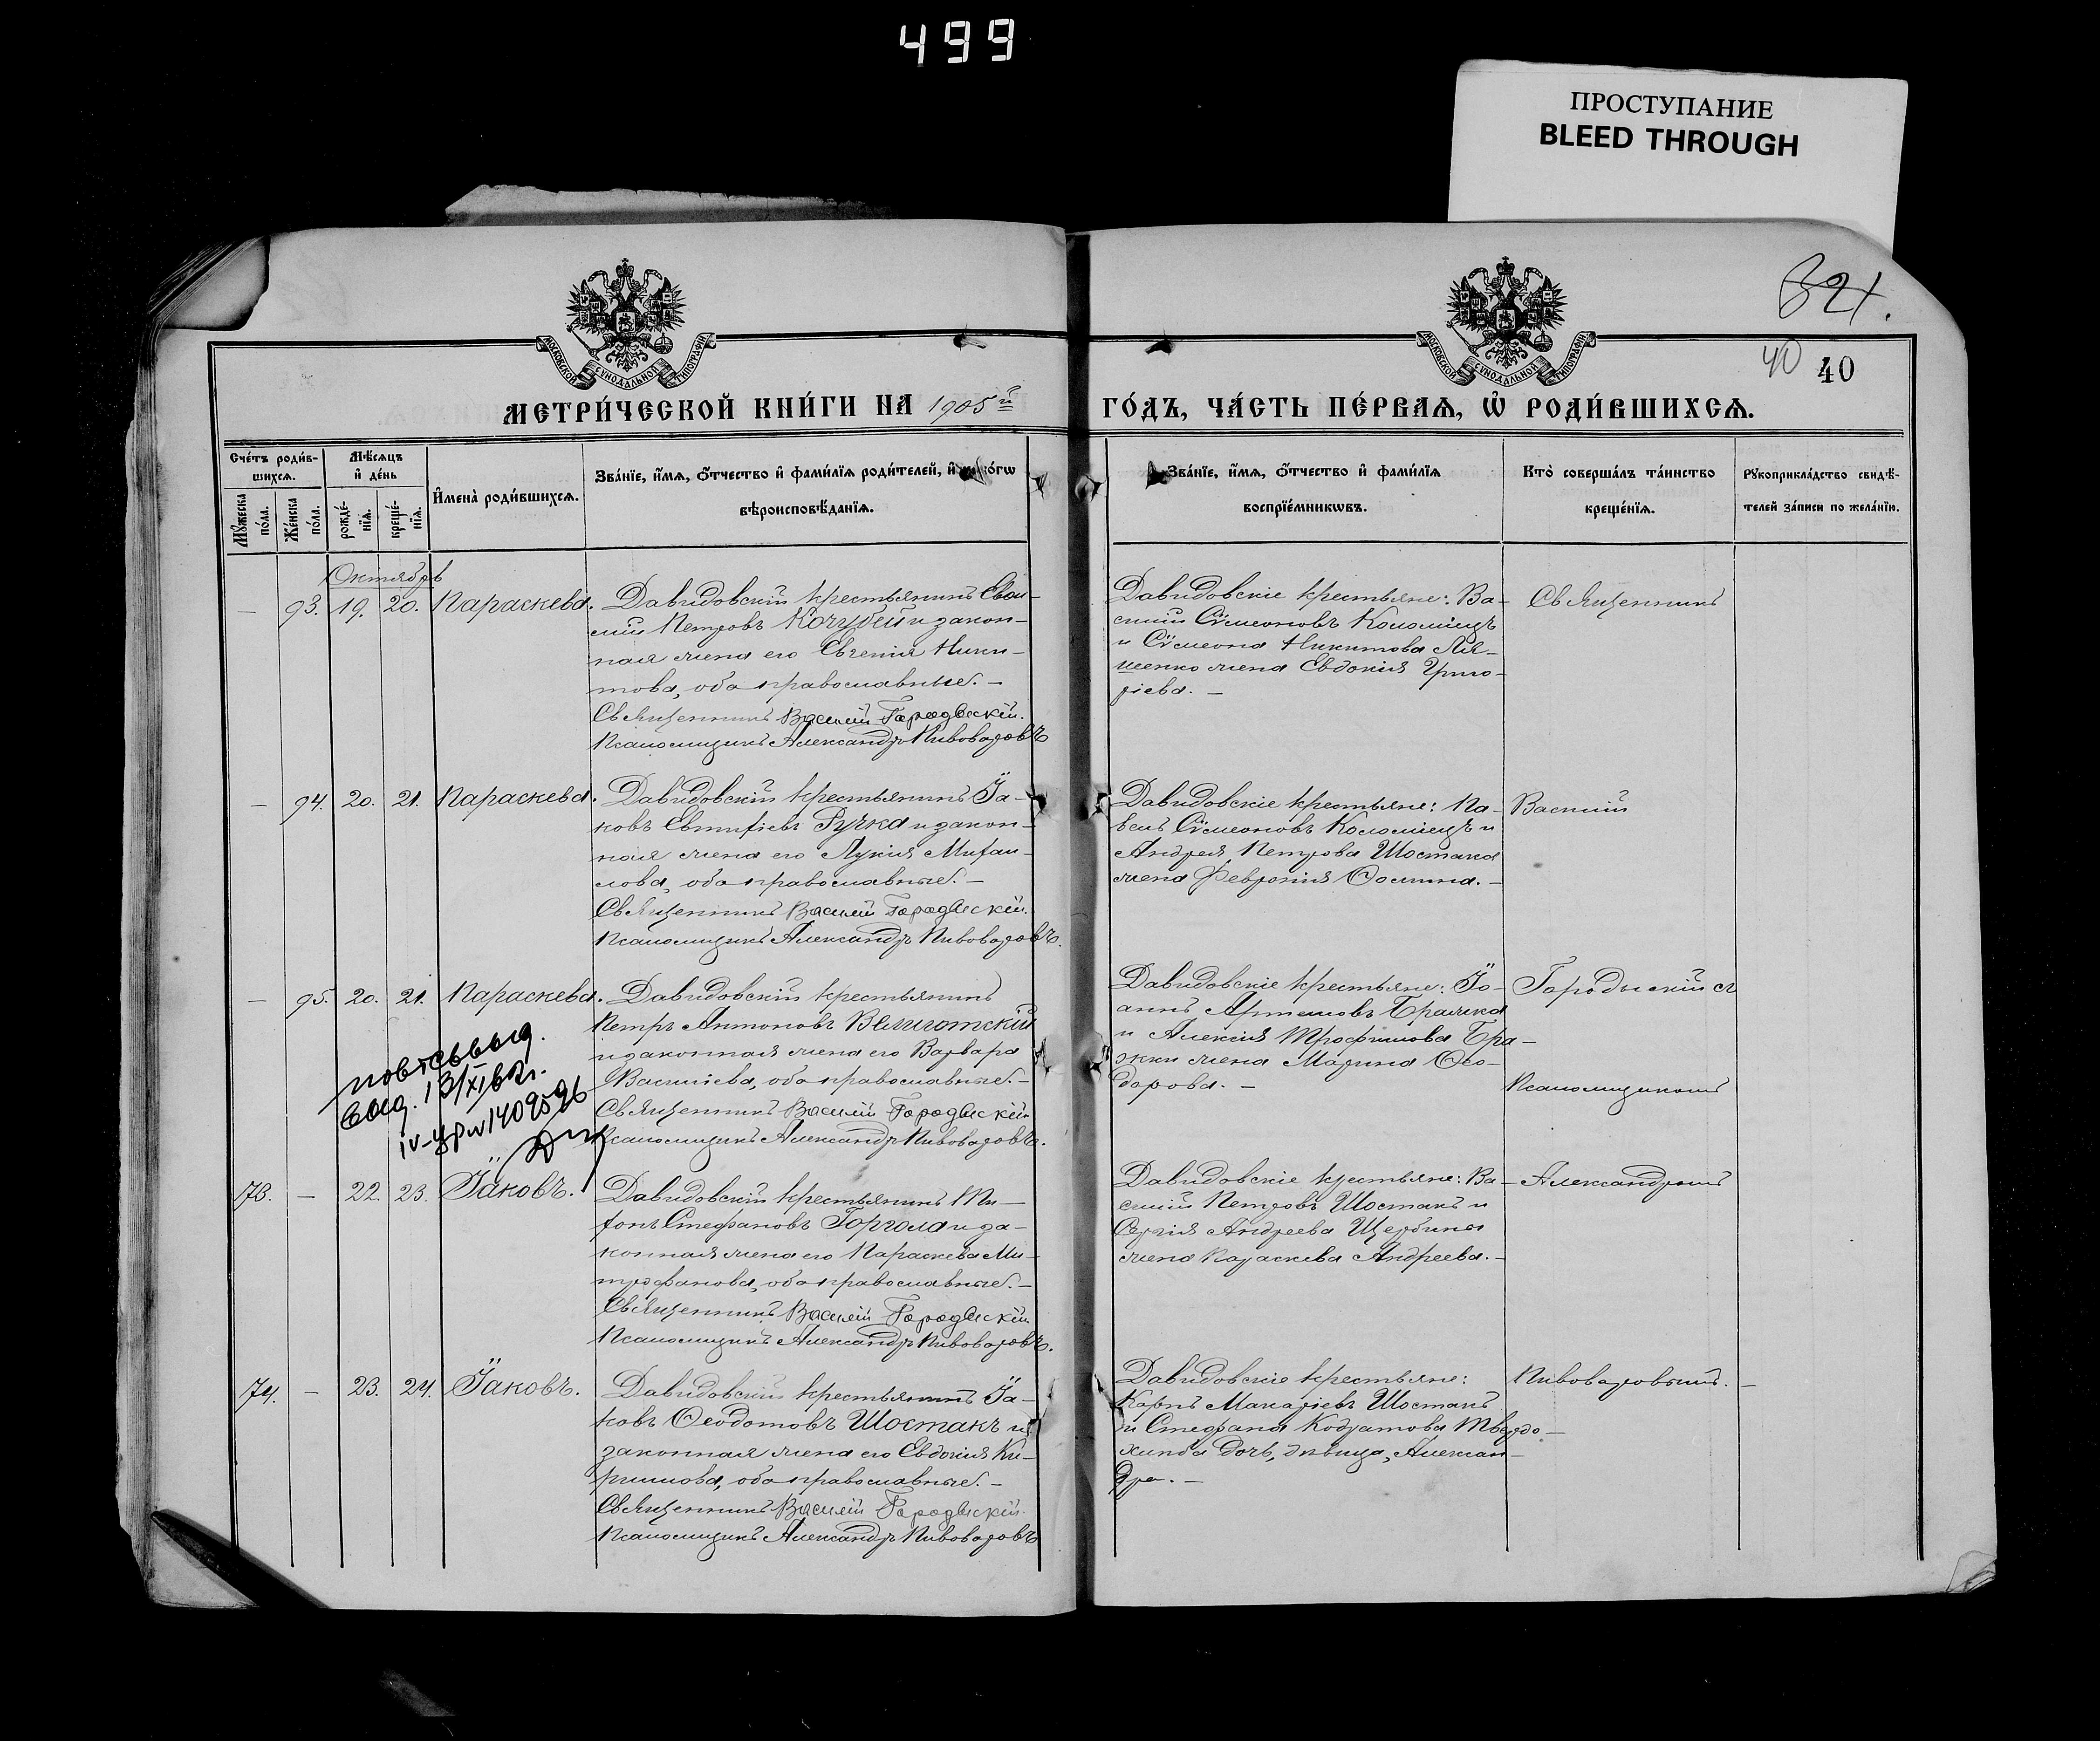 499
ПРОСТУПАНИЕ
BLEED THROUGH
321.
40 40
МОСКОВСКОЙ СѴНОДАЛЬНОЙ ТИПОГРАФІИ
МОСКОВСКОЙ СѴНОДАЛЬНОЙ ТИПОГРАФІИ
МЕТРИ́ЧЕСКОЙ КНИ́ГИ НА 1905й
ГО́ДЪ, ЧА́СТЬ ПЕ́РВАѦ, Ѡ҆ РОДИ́ВШИХСѦ.
Сче́тъ роди́в-
шихсѧ.
Мꙋжеска по́ла.
Же́нска по́ла.
Мѣ́сѧцъ
и҆ де́нь
рожде́-
нїѧ.
креще́-
нїѧ.
И҆мена̀ роди́вшихсѧ.
Зва́нїе, и҆́мѧ, ѻ҆́тчество и҆ фами́лїѧ роди́телей, и҆
вѣроисповѣ́данїѧ.
Зва́нїе, и҆́мѧ, ѻ҆́тчество и҆ фами́лїѧ
воспрїе́мникѡвъ.
Кто̀ соверша́лъ та́инство
креще́нїѧ.
Рꙋкоприкла́дство свидѣ́-
телей за́писи по жела́нїю.
Октябрь
— 93. 19. 20. Параскева.
Давидовскій крестьянинъ Васи-
лій Петровъ Кочубей и закон-
ная жена его Евгенія Ники-
това, оба православные. —
Священникъ Василій Городыскій.
Псаломщикъ Александръ Пивоваровъ
Давидовскіе крестьяне: Ва-
силій Сѵмеоновъ Коломіецъ
и Сѵмеона Никитова Ля-
шенко жена Евдокія Григо-
ріева. —
Священникъ
— 94. 20. 21. Параскева.
Давидовскій крестьянинъ Іа-
ковъ Евтихіевъ Ручка и закон-
ная жена его Лукія Михаи-
лова, оба православные. —
Священникъ Василій Городыскій.
Псаломщикъ Александръ Пивоваровъ.
Давидовскіе крестьяне: Па-
велъ Сѵмеоновъ Коломіецъ и
Андрея Петрова Шостака
жена Февронія Ѳомина. —
Василій
— 95. 20. 21. Параскева.
Давидовскій крестьянинъ
Петръ Антоновъ Величотскій
и законная жена его Варвара
Василіева, оба православные. —
Священникъ Василій Городыскій
Псаломщикъ Александръ Пивоваровъ.
Давидовскіе крестьяне: Іо-
аннъ Артемовъ Бражка
и Алексія Трофимова Бра-
жки жена Марина Ѳео-
дорова. —
Городыскій съ
Псаломщикомъ
IV-УР №1409596
73. — 22. 23. Іаковъ.
Давидовскій крестьянинъ Ти-
хонъ Стефановъ Горгола и за-
конная жена его Параскева Ми-
трофанова, оба православные. —
Священникъ Василій Городыскій
Псаломщикъ Александръ Пивоваровъ.
Давидовскіе крестьяне: Ва-
силій Петровъ Шостакъ и
Сергія Андреева Щербины
жена Параскева Андреева. —
Александромъ
74. — 23. 24. Іаковъ.
Давидовскій крестьянинъ Іа-
ковъ Ѳеодотовъ Шостакъ и
законная жена его Евдокія Ки-
риллова, оба православные. —
Священникъ Василій Городыскій.
Псаломщикъ Александръ Пивоваровъ
Давидовскіе крестьяне:
Карпъ Макаріевъ Шостакъ
и Стефана Кодратова Твердо-
хлиба дочь, дѣвица, Алексан-
дра. —
Пивоваровымъ. —